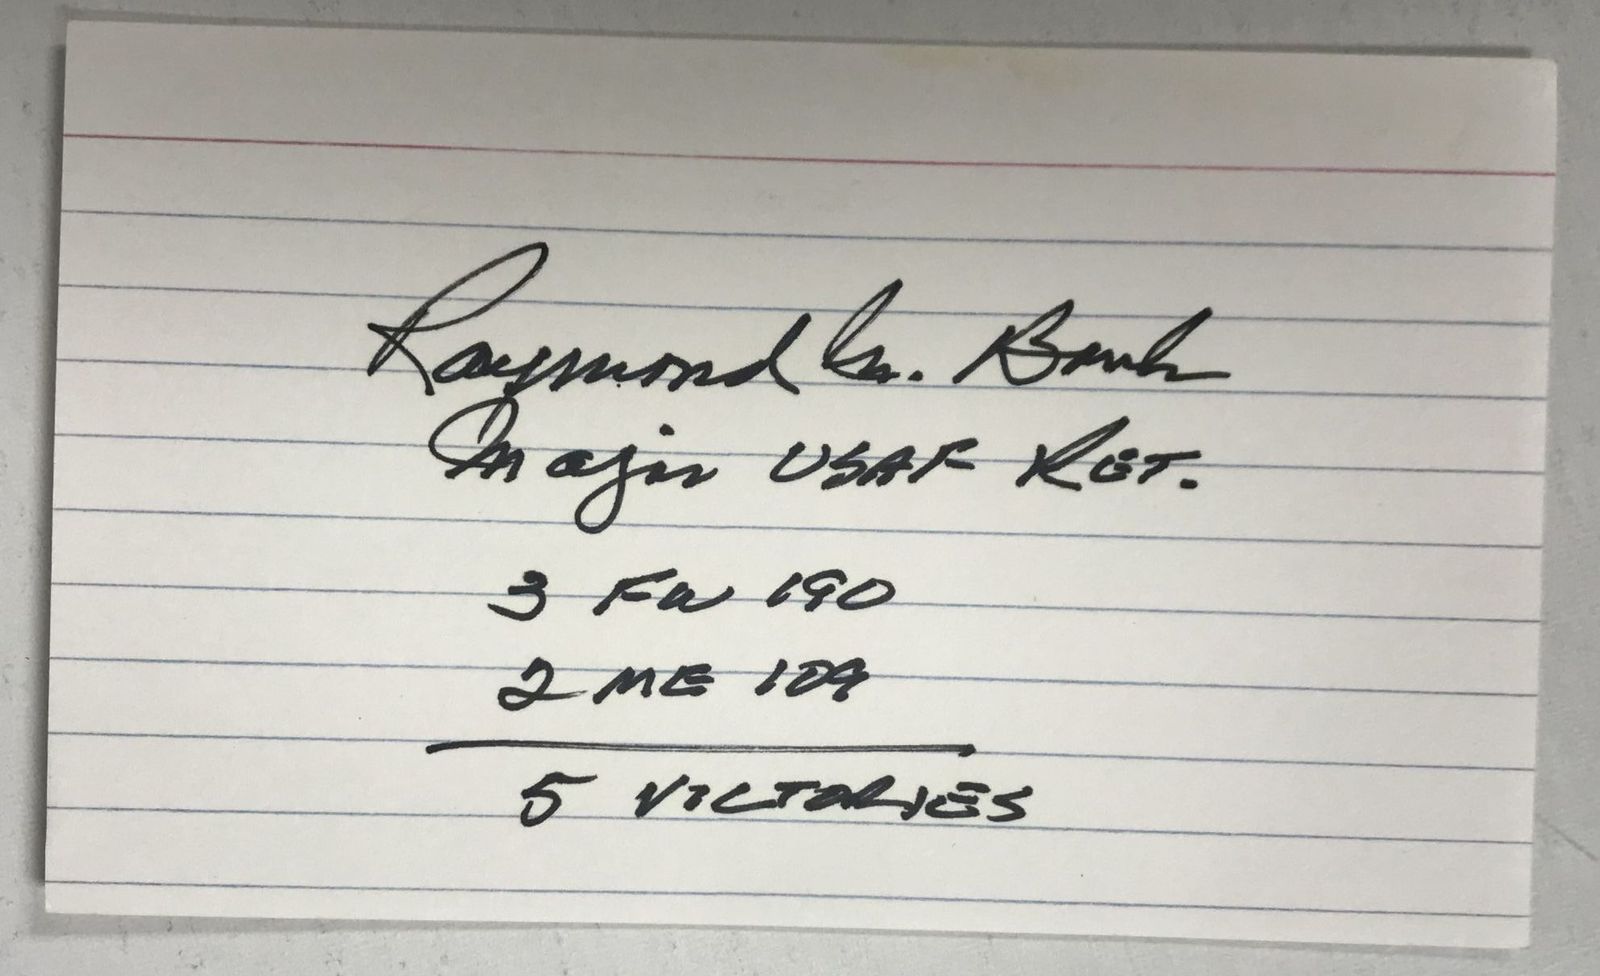 Raymond M. Bank
Major USAF RET.
3 FW 190
2 ME 109
5 VICTORIES